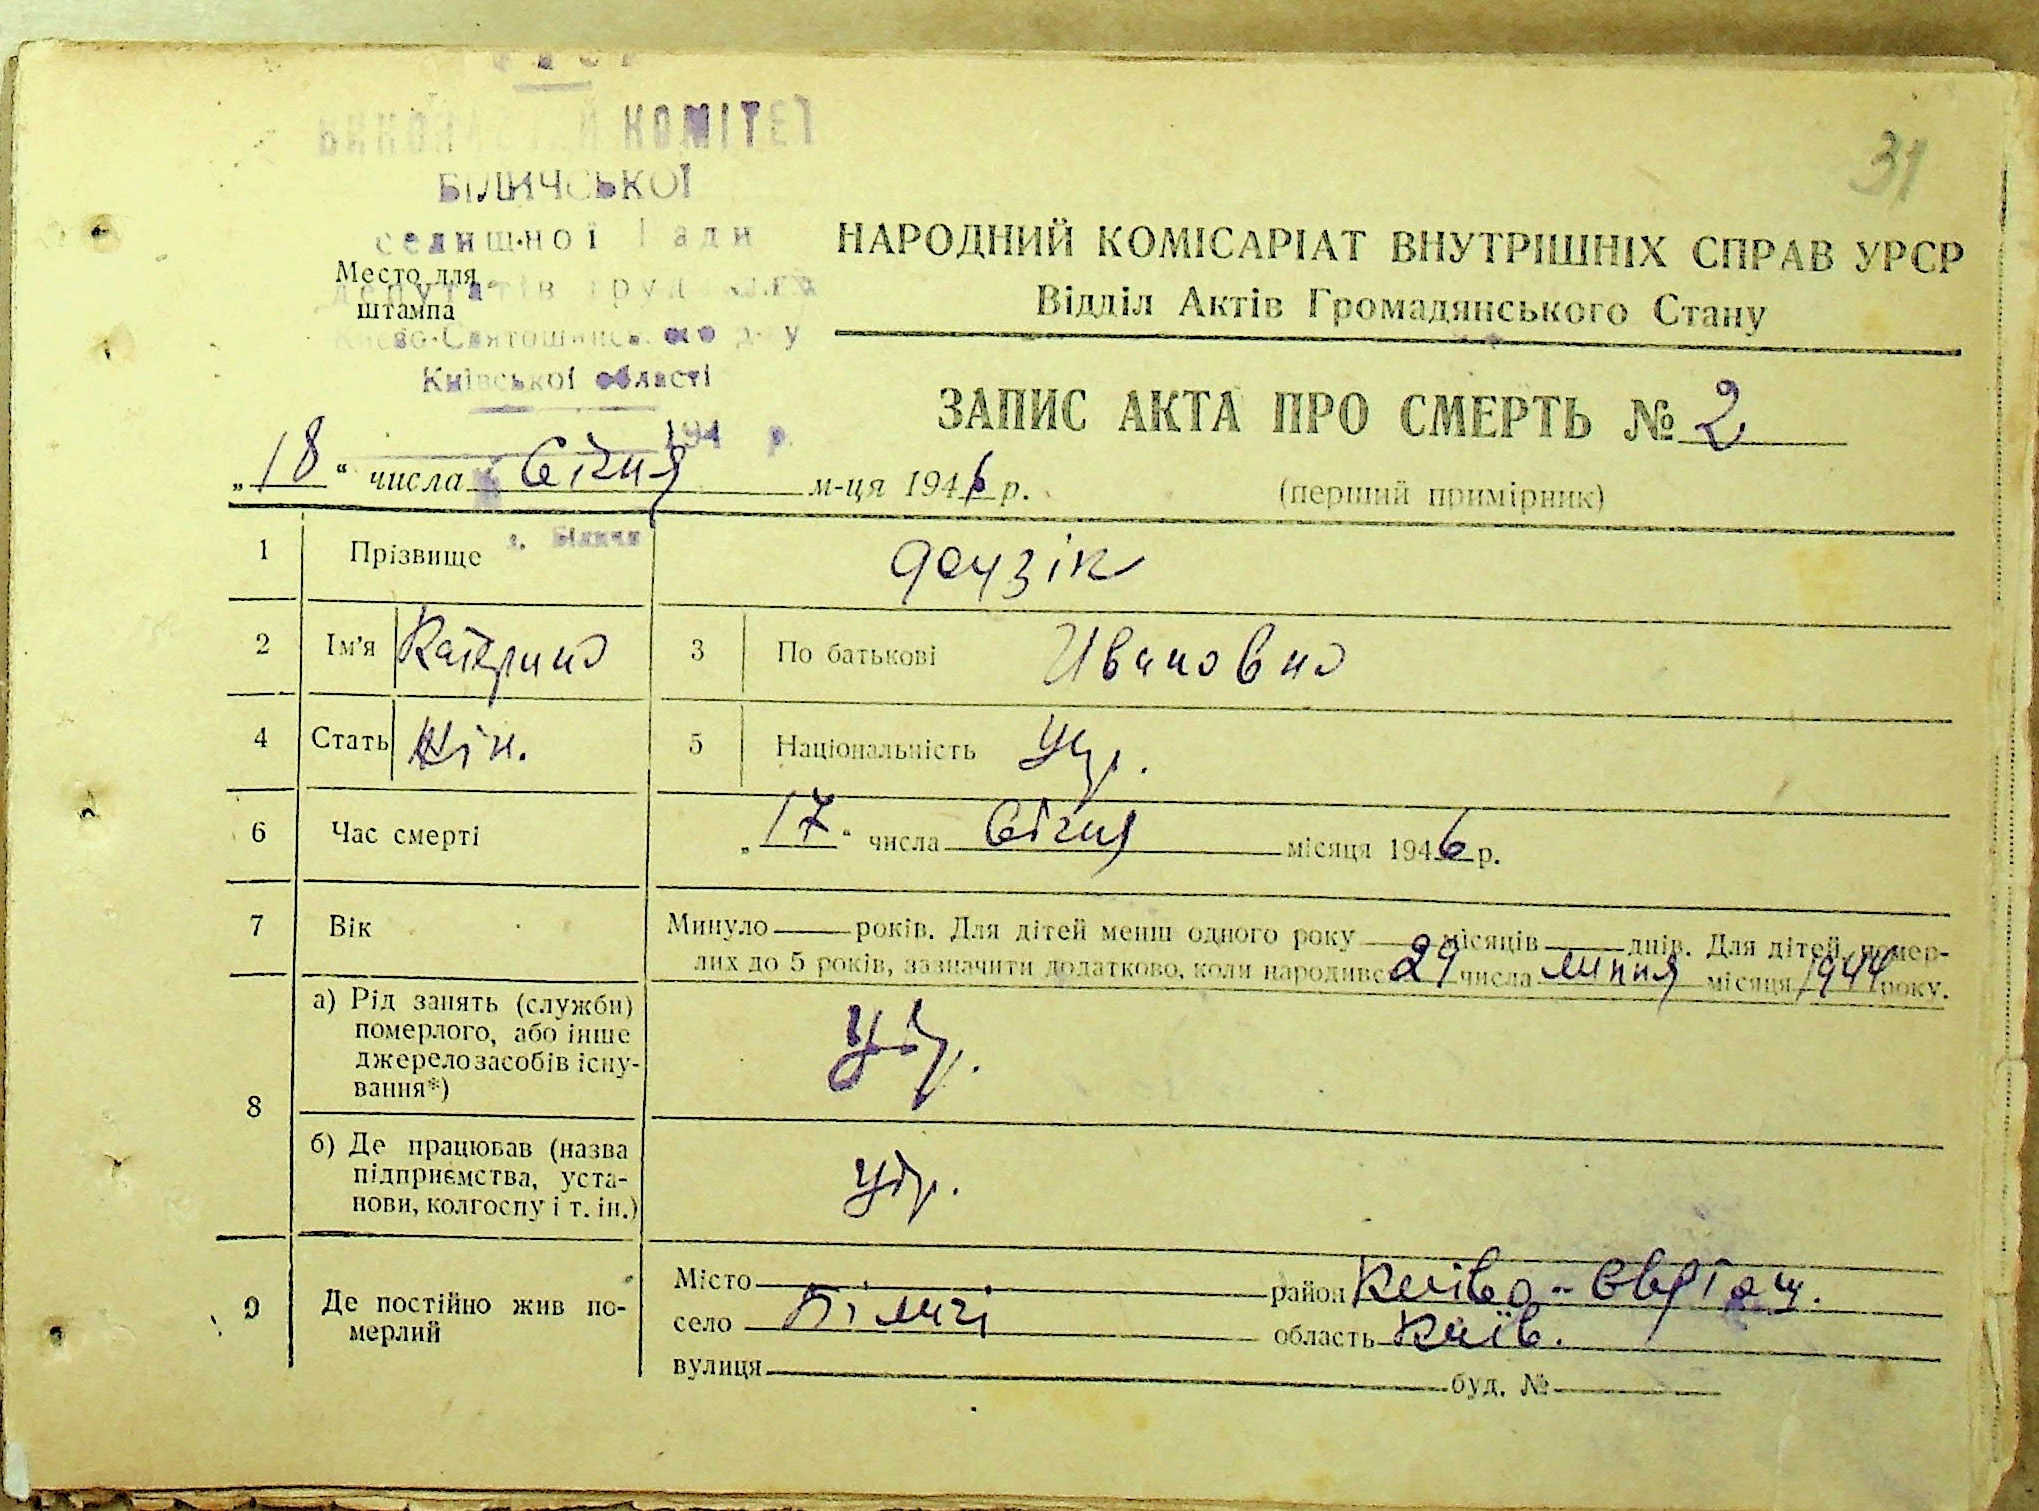 31
УРСР
ВИКОНАВЧИЙ КОМІТЕТ
БІЛИЧСЬКОЇ
селищної Ради
депутатів трудящих
Києво-Святошинського р-ну
Київської області
194 р.
с. Біличі
Место для
штампа
НАРОДНИЙ КОМІСАРІАТ ВНУТРІШНІХ СПРАВ УРСР
Відділ Актів Громадянського Стану
ЗАПИС АКТА ПРО СМЕРТЬ № 2
„18“ числа Січня м-ця 1946 р. (перший примірник)
1 Прізвище
2 Ім'я Катерина 3 По батькові Ивановна
4 Стать жін. 5 Національність Укр.
6 Час смерті „17“ числа Січня місяця 1946 р.
7 Вік Минуло — років. Для дітей менш одного року — місяців — днів. Для дітей, помер-
лих до 5 років, зазначити додатково, коли народився 29 числа липня місяця 1944 року.
8 а) Рід занять (служби)
померлого, або інше
джерело засобів існу-
вання*)
б) Де працював (назва
підприємства, уста-
нови, колгоспу і т. ін.)
9 Де постійно жив по-
мерлий
Місто район Києво-Святош.
село Біличі область Київ.
вулиця буд. №